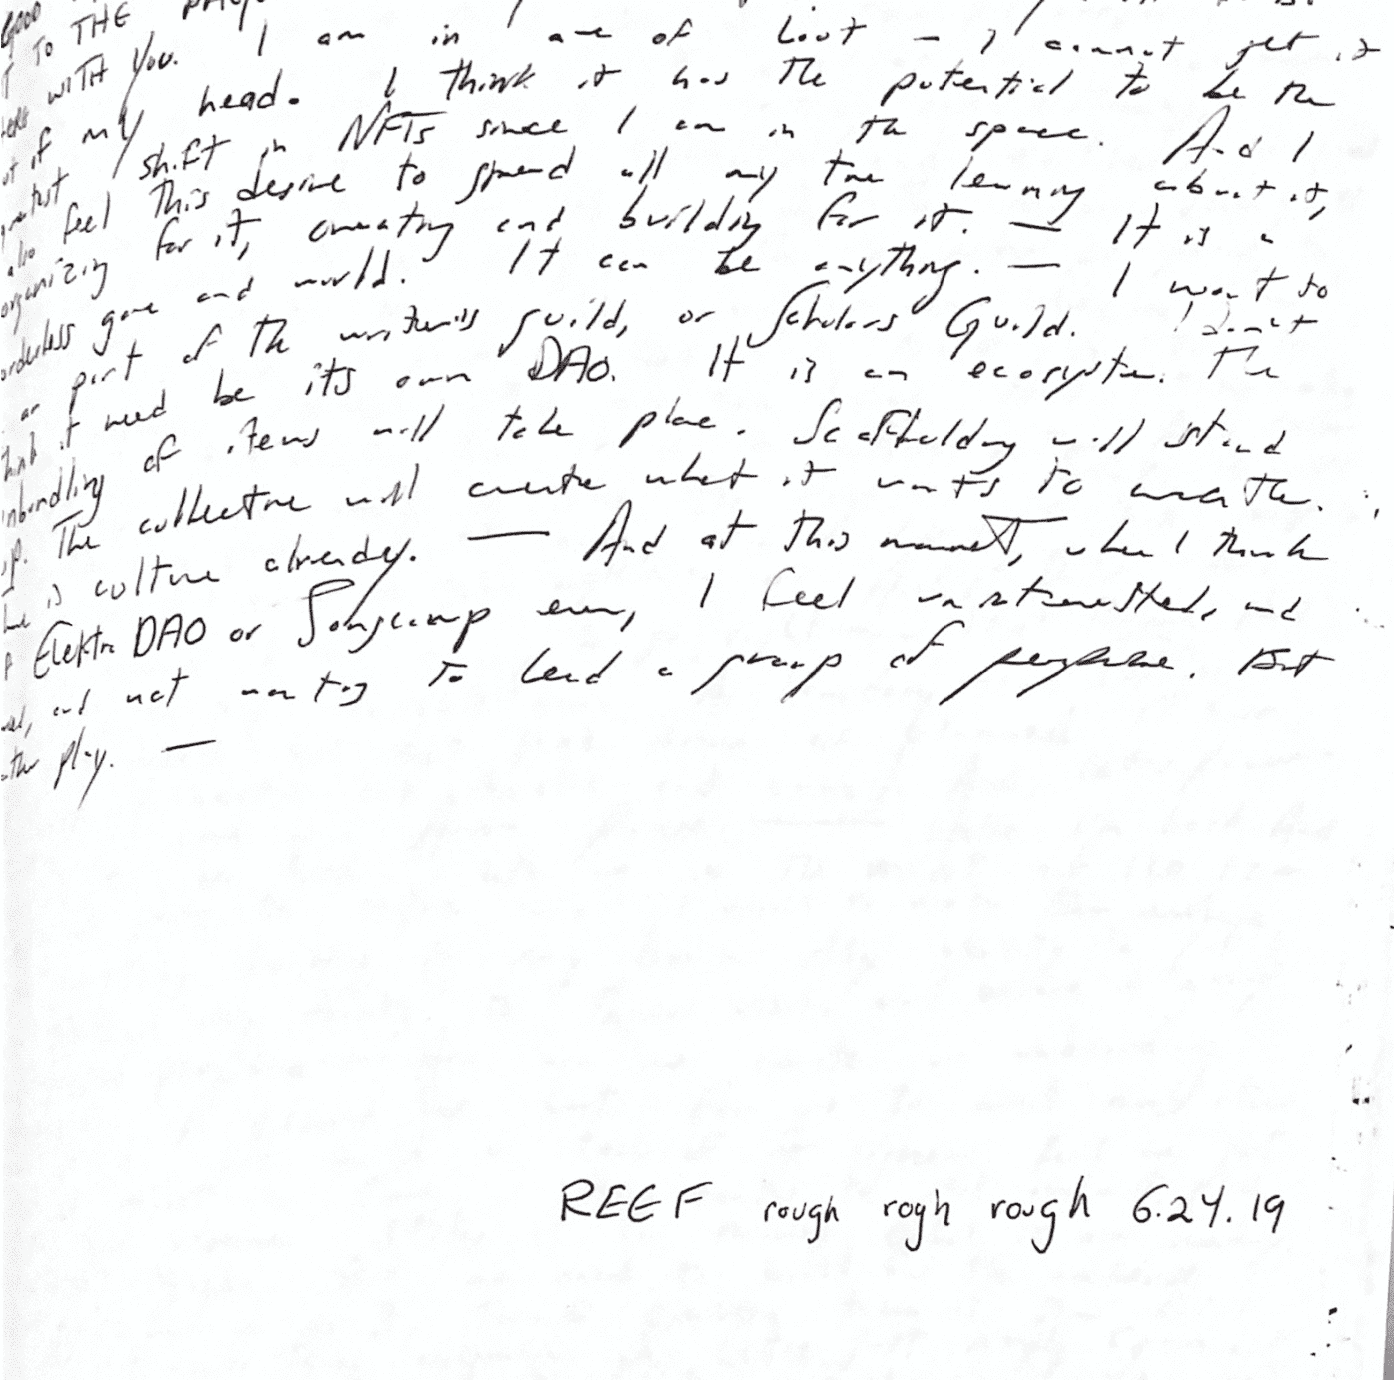 GOOD
TO THE
WITH YOU. I am in awe of Loot – I cannot get it
out if my head. I think it has the potential to be the
greatest shift in NFTs since I am in the space. And I
also feel this desire to spend all my time learning about it,
organizing for it, creating and building for it. — It is a
borderless game and world. It can be anything. — I want to
part of the writer's guild, or Scholars Guild. I don't
think it need be its own DAO. It is an ecosystem. The
unbundling of items will take place. Scaffolding will stand
up. The collective will create what it wants to create.
is culture already. — And at this moment, when I think
Elektra DAO or Songcamp even, I feel uninterested, and
and not wanting to lead a group of people. But
play. —
REEF rough rogh rough 6.24.19